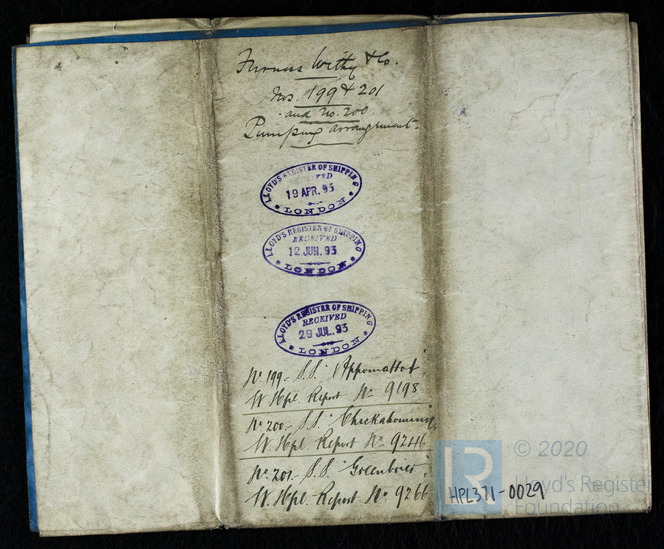 Furness Withy & Co.
Nos. 199 & 201
and No. 200
Pumping arrangement.
LLOYD'S REGISTER OF SHIPPING
RECEIVED
19 APR. 93
LONDON
LLOYD'S REGISTER OF SHIPPING
RECEIVED
12 JUN. 93
LONDON
LLOYD'S REGISTER OF SHIPPING
RECEIVED
29 JUL. 93
LONDON
No 199 - S.S. "Appomattox"
W. Hpl. Report No 9198
No 200 - S.S. "Chickahominy"
W. Hpl. Report No 9246
No. 201 - S.S. "Greenbrier"
W. Hpl. Report No 9266
HPL371-0029
LR
© 2020
Lloyd's Register
Foundation